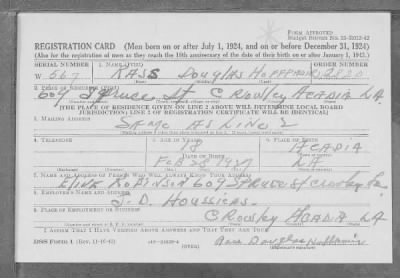 FORM APPROVED
Budget Bureau No. 33-R012-42
REGISTRATION CARD—(Men born on or after July 1, 1924, and on or before December 31, 1924)
(Also for the registration of men as they reach the 18th anniversary of the date of their birth on or after January 1, 1943.)
SERIAL NUMBER
1. NAME (Print)
ORDER NUMBER
W 567
RASS Douglas HOFFPAUIR
2. PLACE OF RESIDENCE (Print)
609 Spruce St CROWLEY ACADIA LA.
[THE PLACE OF RESIDENCE GIVEN ON LINE 2 ABOVE WILL DETERMINE LOCAL BOARD
JURISDICTION; LINE 2 OF REGISTRATION CERTIFICATE WILL BE IDENTICAL]
3. MAILING ADDRESS
SAME AS LINE 2
4. TELEPHONE
5. AGE IN YEARS
6. PLACE OF BIRTH
18
ACADIA
DATE OF BIRTH
LA
7. NAME AND ADDRESS OF PERSON WHO WILL ALWAYS KNOW YOUR ADDRESS
ROBINSON 609 SPRUCE ST Crowley La.
8. EMPLOYER'S NAME AND ADDRESS
J. D.
9. PLACE OF EMPLOYMENT OR BUSINESS
CROWLEY ACADIA LA
I AFFIRM THAT I HAVE VERIFIED ABOVE ANSWERS AND THAT THEY ARE TRUE.
DSS Form 1 (Rev. 11-16-42)
(OVER)
Rass Douglas Hoffpauir